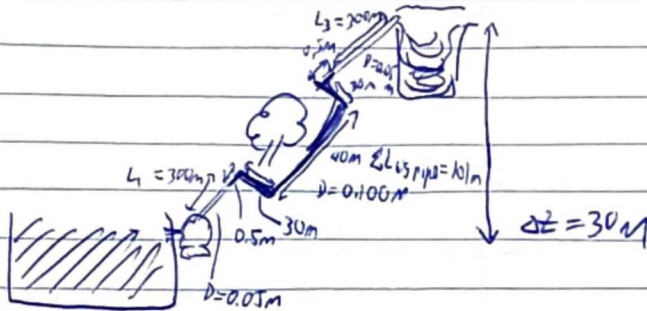 L₃ = 300m
0.5m
D=0.05
30m m
40m ΣL US pipe = 101m
D=0.100M
L₁ = 300m
0.5m
30m
ΔZ = 30M
D=0.05m